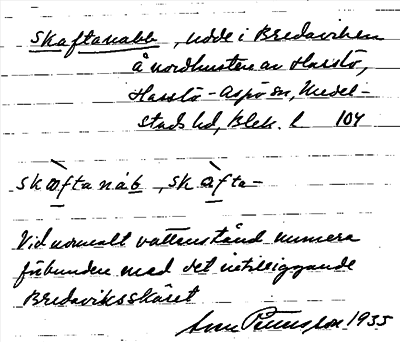 Skaftanabb, udde i Bredaviken
å nordkusten av Hasslö,
Hasslö-Aspö sn, Medel-
stads hd, Blek. l 104
skàftanáb, skàfta-
Vid normalt vattenstånd numera
förbunden med det intilliggande
Bredaviksskäret
1935